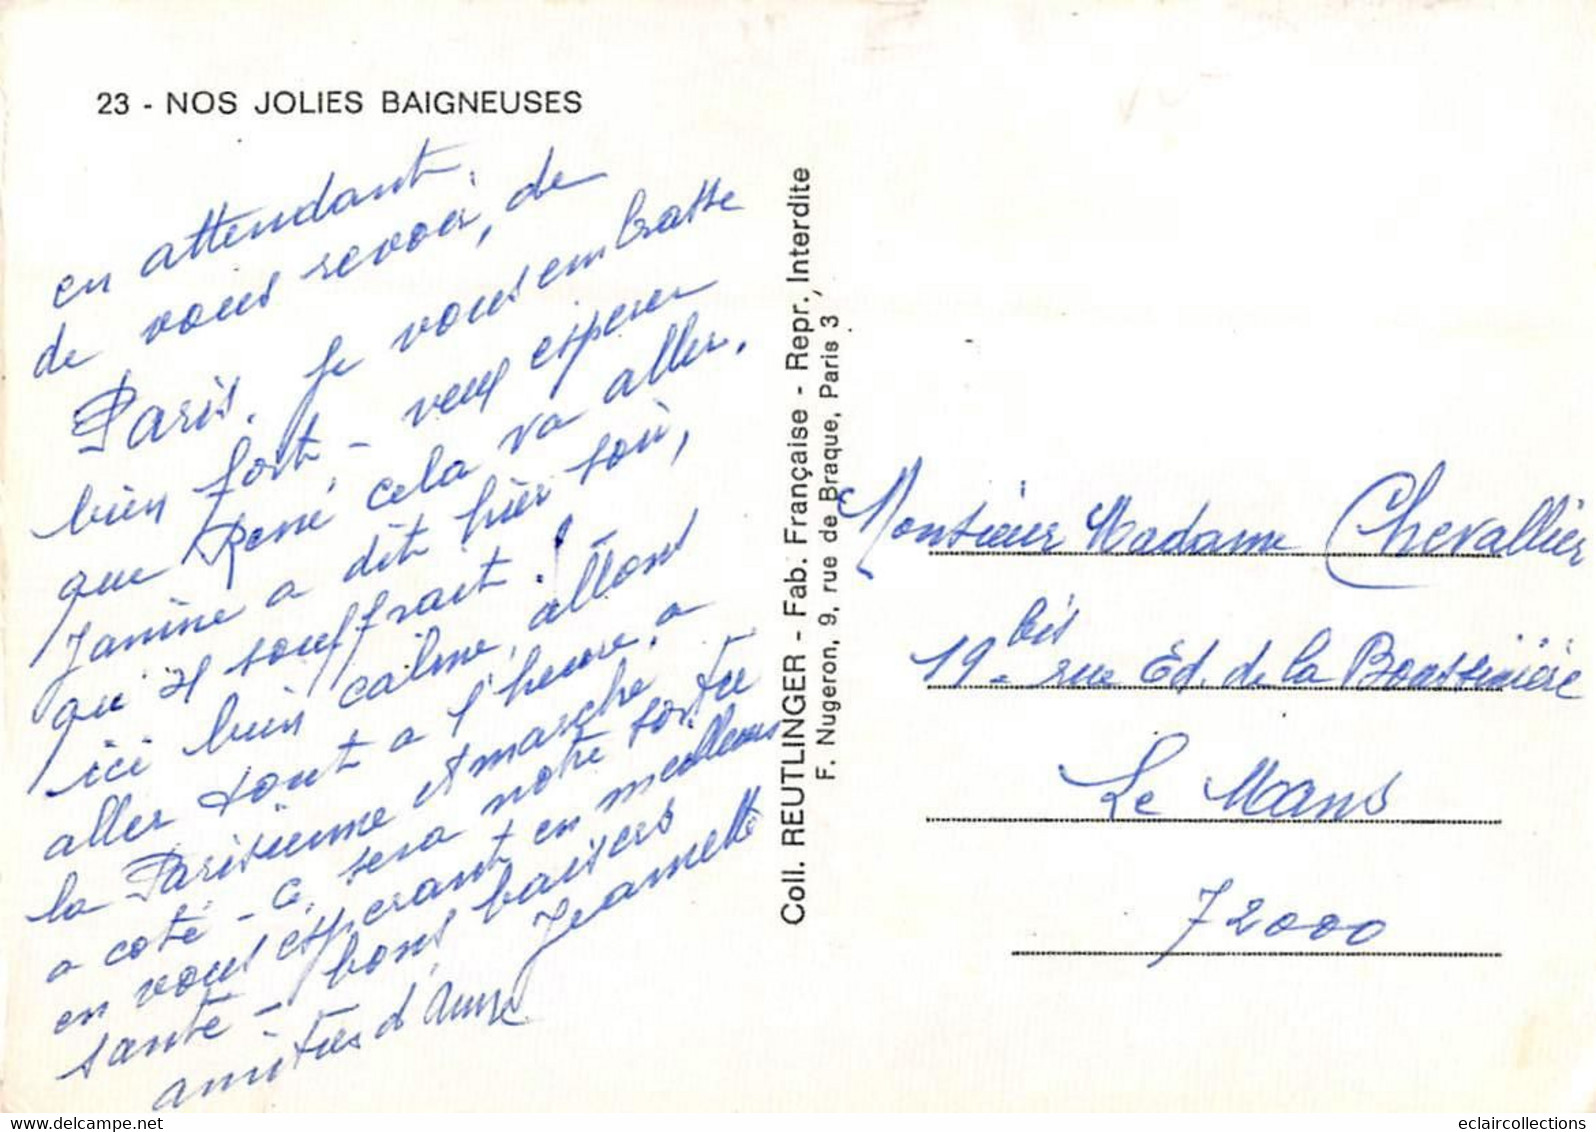 23 - NOS JOLIES BAIGNEUSES
en attendant
de vous revoir, de
Paris. Je vous embrasse
bien fort, - veux esperer
que René cela va aller.
Janine a dit hier soir,
qu'il souffrait !
ici bien calme, allons
aller tout a l'heure, a
la Parisienne et marche
a coté - ça sera notre sortie
en vous esperant en meilleure
santé - bons baisers
amitiés d'Anne Jeannette
Coll. REUTLINGER - Fab. Française - Repr. Interdite
F. Nugeron, 9, rue de Braque, Paris 3
Monsieur Madame Chevallier
19 bis rue Ed. de la Boussinière
Le Mans
72000
www.delcampe.net
eclaircollections